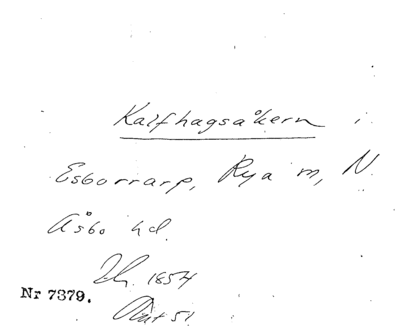 Kalfhagsåkern i
Esborrarp, Rya sn, N.
Åsbo hd.
1854
Nr 7379.
51